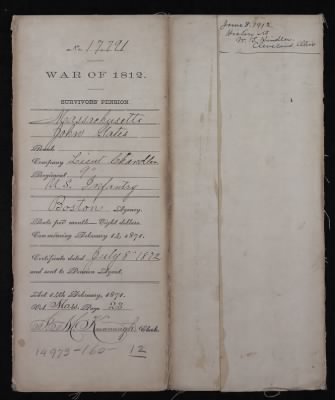 No. 17,791
WAR OF 1812.
SURVIVORS PENSION
Massachusetts
John States
Rank
Company Lieut Chandler
Regiment 9"
U.S. Infantry
Boston Agency.
Rate per month—Eight dollars
Commencing February 14, 1871.
Certificate dated July 8" 1872
and sent to Pension Agent.
Act 14th February, 1871.
Vol. Mass. Page 22
Kavanaugh Clerk.
14973-160- 12
June 8, 1912
W.
Cleveland, Ohio